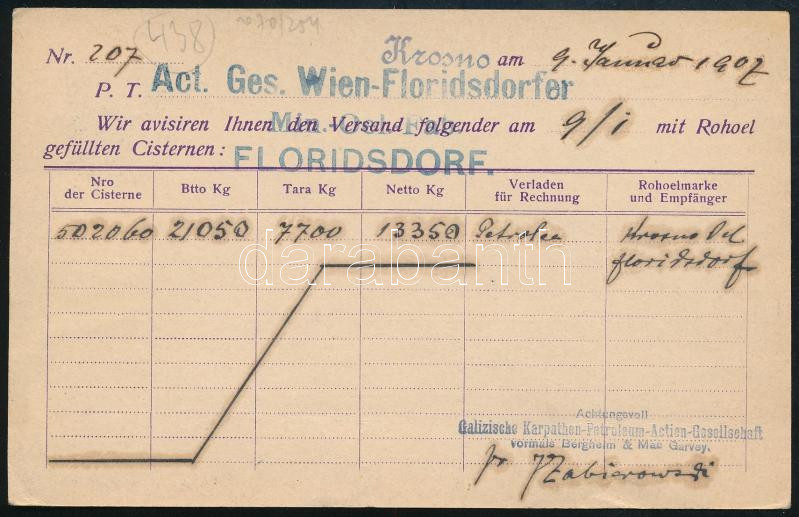 438
Nr. 207 Krosno am 9. Januar 1907
P. T. Act. Ges. Wien-Floridsdorfer
Min.-Oel-Fab.
Wir avisiren Ihnen den Versand folgender am 9/1 mit Rohoel
gefüllten Cisternen: FLORIDSDORF.
Nro der Cisterne Btto Kg Tara Kg Netto Kg Verladen für Rechnung Rohoelmarke und Empfänger
502060 21050 7700 13350 Petrolea Krosno Oel
Floridsdorf
darabanth
Achtungsvoll
Galizische Karpathen-Petroleum-Actien-Gesellschaft
vormals Bergheim & Mac Garvey.
pr JZabierowski